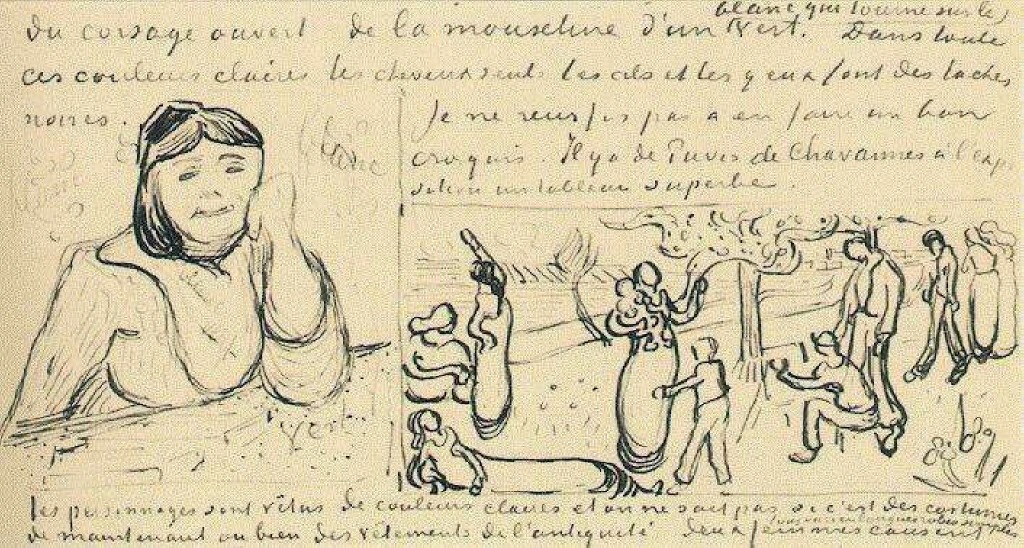 blanc qui tourne sur le
du corsage ouvert de la mousseline d'un vert. Dans toute
ces couleurs claires les cheveux seuls les cils et les yeux font des taches
noires.
Je ne reussis pas a en faire un bon
croquis. Il y a de Puvis de Chavannes à l'expo
sition un tableau superbe.
blanc
vert
les personnages sont vêtus de couleurs claires et on ne sait pas si c'est des costumes
de maintenant ou bien des vêtements de l'antiquité deux femmes causent
robes simples